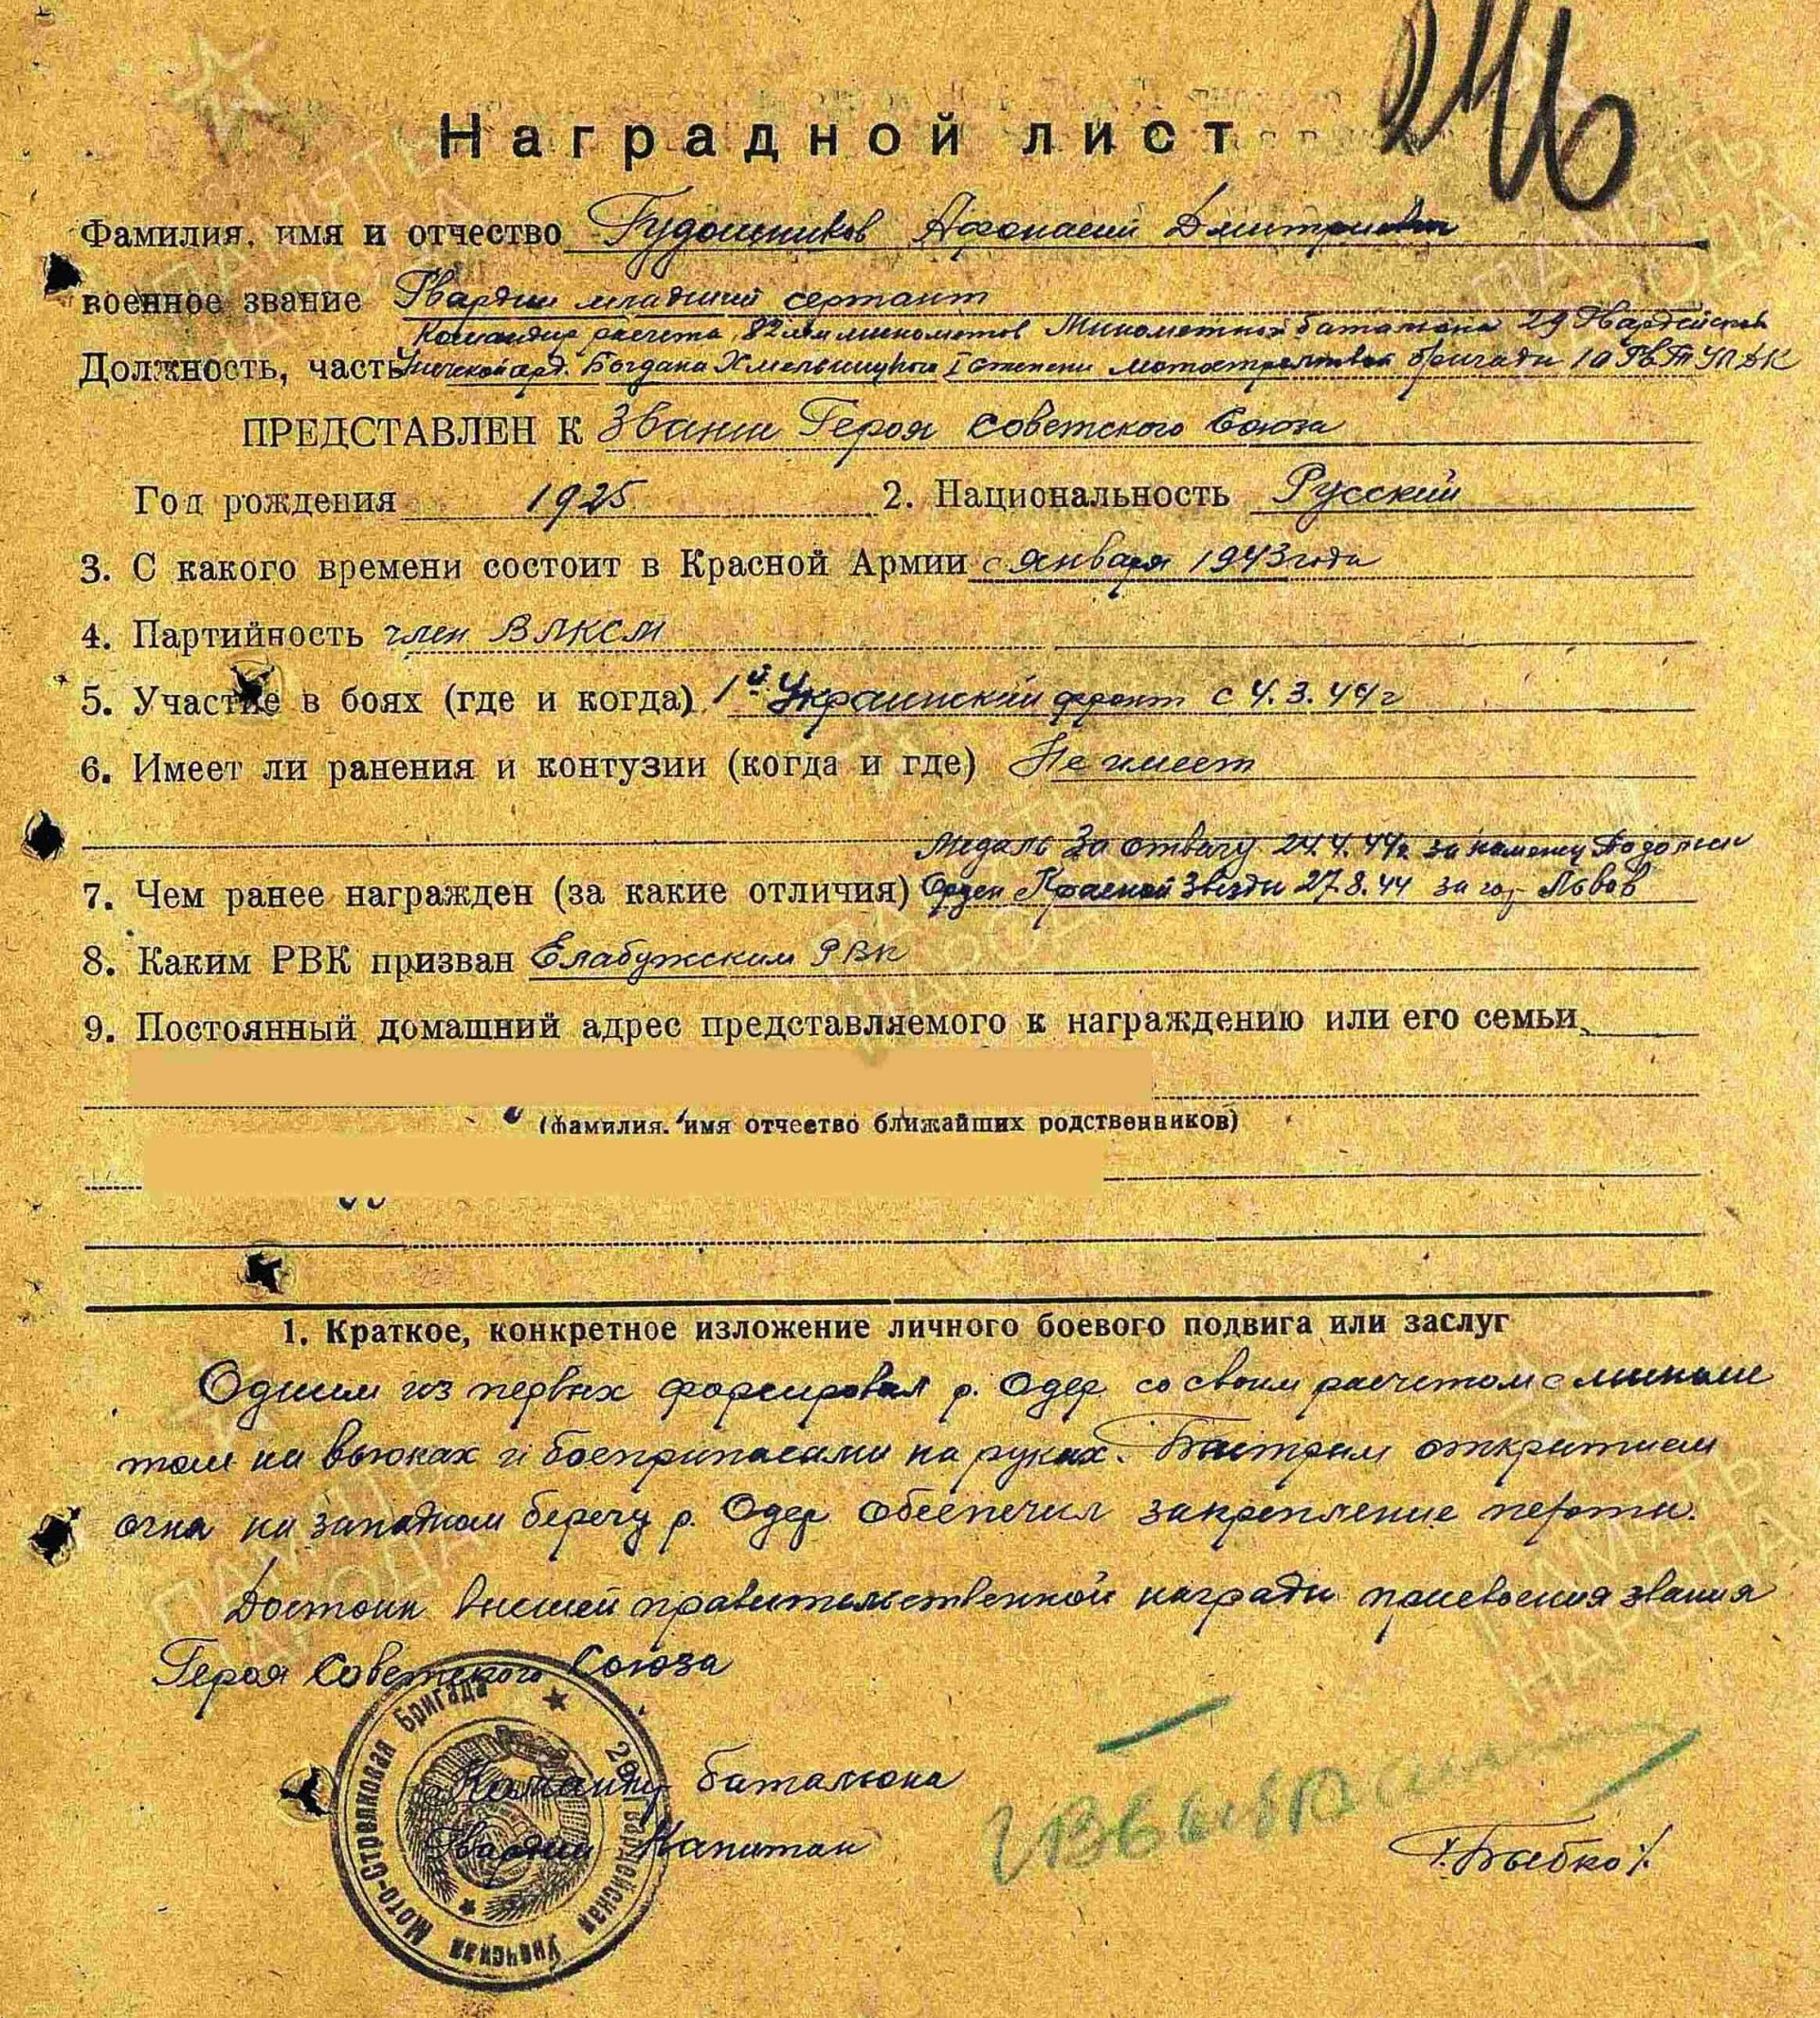 246
Наградной лист
Фамилия, имя и отчество Гудошников Афонасий Дмитриевич
военное звание Гвардии младший сержант
Командир расчета 82 мм минометов Минометного баталиона 29 Гвардейской
Должность, часть Унечской орд. Богдана Хмельницкого I степени мотострелковой бригады 10 ГвТУДК
ПРЕДСТАВЛЕН К Звании Героя Советского Союза
Год рождения 1925 2. Национальность Русский
3. С какого времени состоит в Красной Армии с января 1943 года
4. Партийность член ВЛКСМ
5. Участие в боях (где и когда) 1й Украинский фронт с 4.3.44г
6. Имеет ли ранения и контузии (когда и где) Не имеет
Медаль За отвагу 24.4.44г. за каменец Подольск
7. Чем ранее награжден (за какие отличия) Орден Красной Звезды 27.8.44 за гор Львов
8. Каким РВК призван Елабужским РВК
9. Постоянный домашний адрес представляемого к награждению или его семьи
(фамилия. имя отчество ближайших родственников)
1. Краткое, конкретное изложение личного боевого подвига или заслуг
Одним из первых форсировал р. Одер со своим расчетом с миноме
том на вьюках и боеприпасами на руках. Быстрым открытием
огня на западном берегу р. Одер обеспечил закрепление пехоты.
Достоин высшей правительственной награды присвоения звания
Героя Советского Союза
Командир баталиона
Гвардии Капитан /Выбко/
29 Гвардейская Унечская Мото-Стрелковая Бригада
ПАМЯТЬ НАРОДА